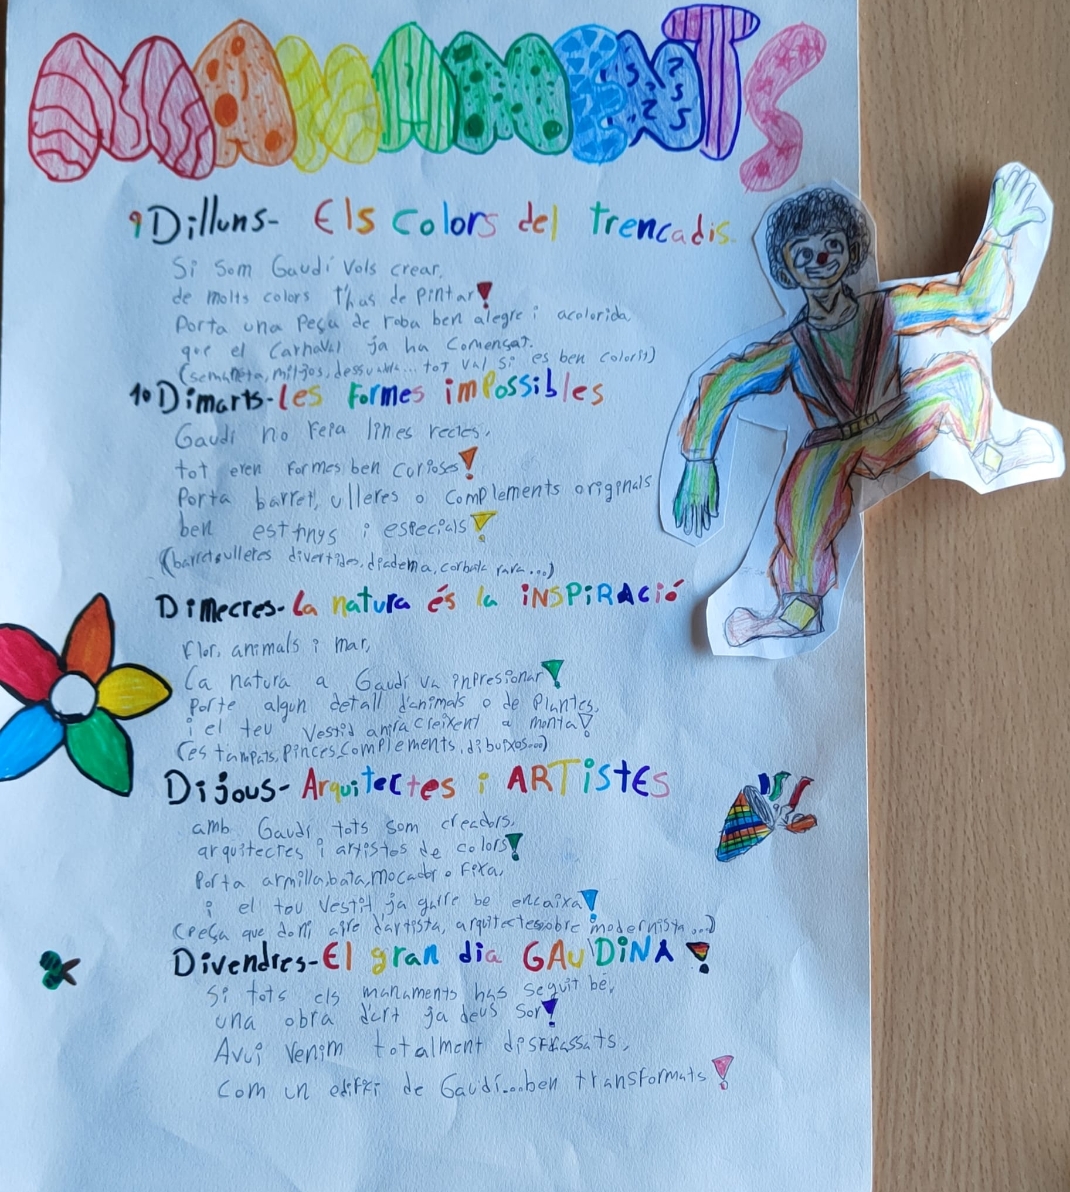 MANAMENTS
9 Dilluns- Els colors del trencadis.
Si som Gaudí vols crear,
de molts colors t'has de pintar!
Porta una peça de roba ben alegre i acolorida
que el Carnaval ja ha començat.
(samarreta, mitjos, dessuadora... tot val si es ben colorit)
10 Dimarts- Les formes impossibles
Gaudí no feia línes rectes,
tot eren formes ben curioses!
Porta barret, ulleres o complements originals
ben estranys i especials!
(barrets, ulleres divertides, diadema, corbata rara...)
Dimecres- La natura és la iNSPiRACió
Flor, animals i mar,
La natura a Gaudí va inpresionar!
Porte algun detall d'animals o de plantes,
i el teu vestid anira creixent a monta!
(estampats, pinces, complements, dibuixos...)
Dijous- Arquitectes i ARTiStES
amb Gaudí tots som creadors,
arquitectes i artistes de colors!
Porta armilla, bata, mocador o faixa,
i el teu vestit ja gairre be encaixa!
(peça que doni aire d'artista, arquitecte, sobre modernista...)
Divendres- El gran dia GAUDINA!
Si tots els manaments has seguit bé,
una obra d'art ja deus ser!
Avui venim totalment disfrassats,
Com un edifixi de Gaudí...ben transformats!